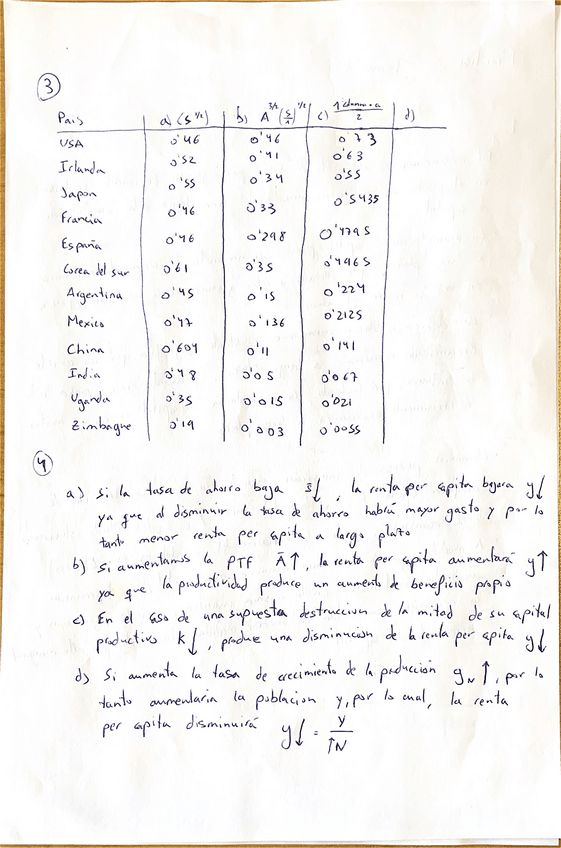 3
País a) (s^1/2) b) A^3/2 (s/A)^1/2 c) 2 d)
USA 0'46 0'46 0'73
Irlanda 0'52 0'41 0'63
Japon 0'55 0'34 0'55
Francia 0'46 0'33 0'5435
España 0'46 0'298 0'4795
Corea del sur 0'61 0'35 0'4965
Argentina 0'45 0'15 0'224
Mexico 0'47 0'136 0'2125
China 0'604 0'11 0'141
India 0'48 0'05 0'067
Uganda 0'35 0'015 0'021
Zimbague 0'19 0'003 0'0055
4
a) Si la tasa de ahorro baja s↓, la renta per capita bajara y↓
ya que al disminuir la tasa de ahorro habrá mayor gasto y por lo
tanto menor renta per capita a largo plazo
b) Si aumentamos la PTF Ā↑, la renta per capita aumentará y↑
ya que la productividad produce un aumento de beneficio propio
c) En el caso de una supuesta destruccion de la mitad de su capital
productivo K↓, produce una disminucion de la renta per capita y↓
d) Si aumenta la tasa de crecimiento de la producción g_N↑, por lo
tanto aumentaria la poblacion y, por lo cual, la renta
per capita disminuirá y↓ = Y/↑N